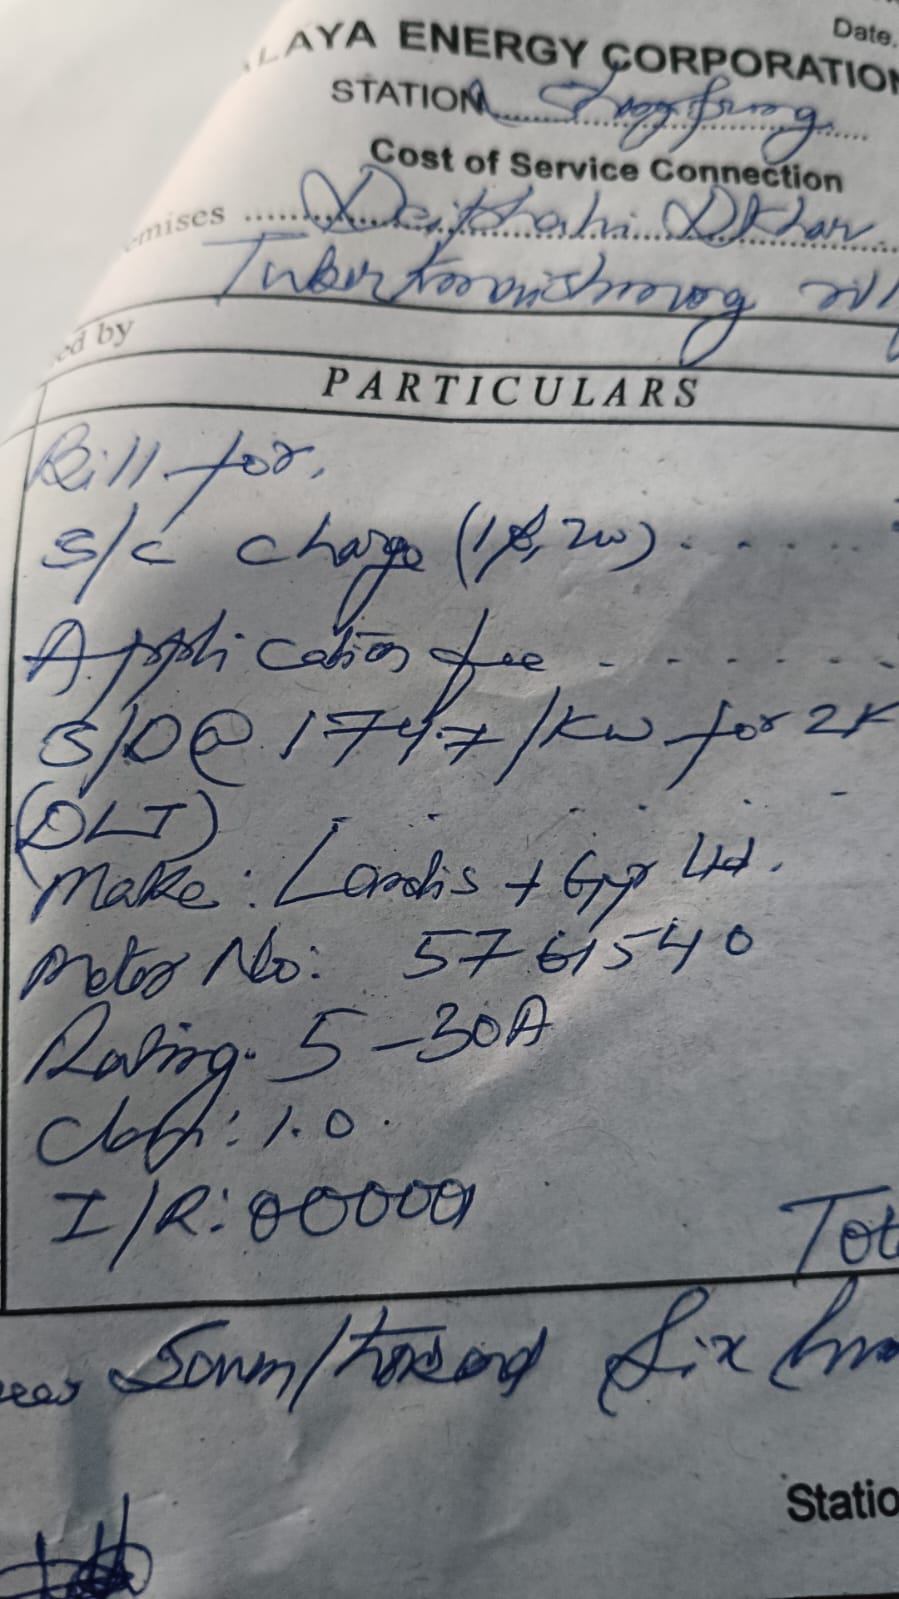 Date.
LAYA ENERGY CORPORATION
STATION
Cost of Service Connection
emises Deithahi Dkhar
ed by
PARTICULARS
Bill for,
S/C charge (1ϕ, 2w)
Application fee
S/D @ 1747/KW for 2K
(DLT)
Make: Landis + Gyr Ltd.
Meter No: 5761540
Rating. 5-30A
Class: 1.0
I/R: 00000
Tot
thousand Six hun
Statio